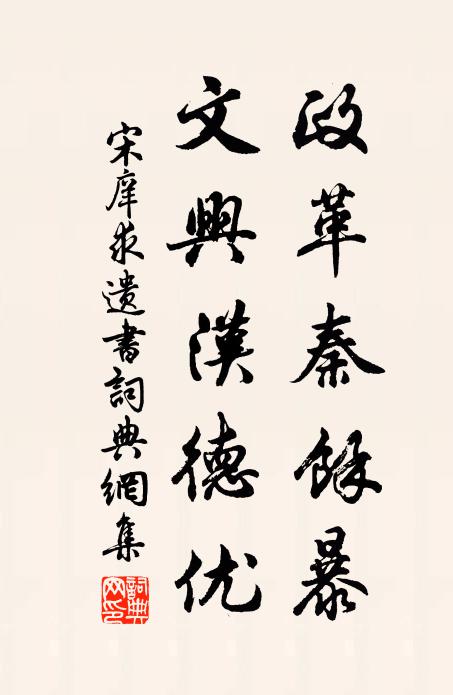 政革秦餘暴
文興漢德优
宋庠求遺書詞典網集
詞典網印